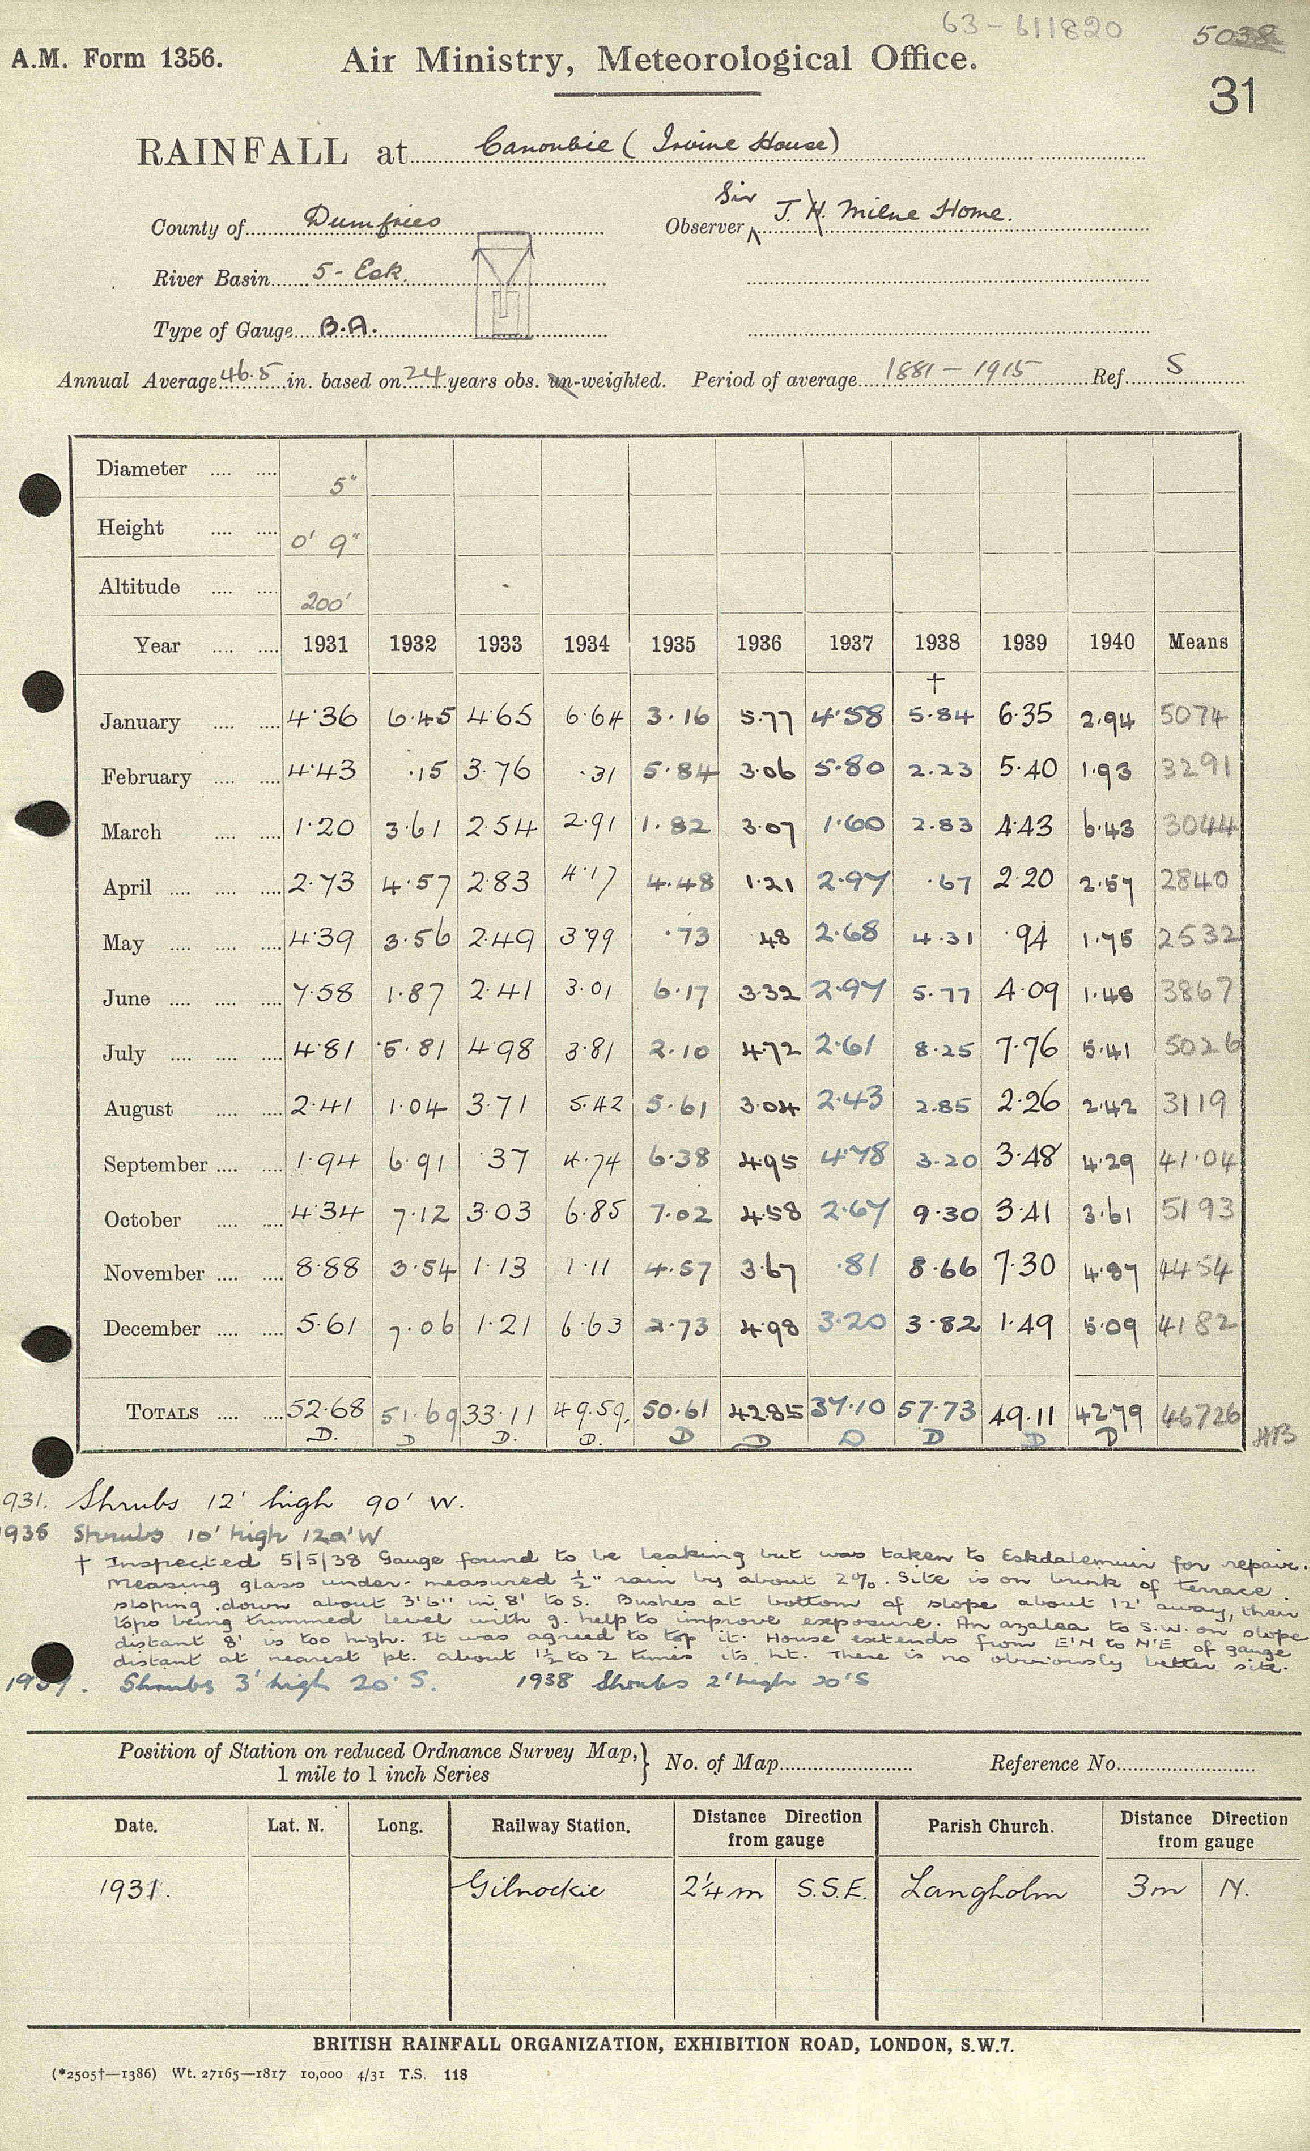 63-611820
5038
A.M. Form 1356.
Air Ministry, Meteorological Office.
31
RAINFALL at Canonbie (Irvine House)
County of Dumfries
Observer Sir J. H. Milne Home.
River Basin 5- Esk.
Type of Gauge B.A.
Annual Average 46.5 in. based on 24 years obs. un-weighted. Period of average 1881-1915 Ref. S
Diameter .... .... 5"
Height .... .... 0' 9"
Altitude .... .... 200'
Year .... .... 1931 1932 1933 1934 1935 1936 1937 1938 1939 1940 Means
†
January .... .... 4.36 6.45 4.65 6.64 3.16 5.77 4.58 5.84 6.35 2.94 5074
February .... .... 4.43 .15 3.76 .31 5.84 3.06 5.80 2.23 5.40 1.93 3291
March .... .... 1.20 3.61 2.54 2.91 1.82 3.07 1.60 2.83 4.43 6.43 3044
April .... .... .... 2.73 4.57 2.83 4.17 4.48 1.21 2.97 .67 2.20 2.57 2840
May .... .... .... 4.39 3.56 2.49 3.99 .73 .48 2.68 4.31 .94 1.75 2532
June .... .... .... 7.58 1.87 2.41 3.01 6.17 3.32 2.97 5.77 4.09 1.48 3867
July .... .... .... 4.81 5.81 4.98 3.81 2.10 4.72 2.61 8.25 7.76 5.41 5026
August .... .... 2.41 1.04 3.71 5.42 5.61 3.04 2.43 2.85 2.26 2.42 3119
September .... .... 1.94 6.91 .37 4.74 6.38 4.95 4.78 3.20 3.48 4.29 41.04
October .... .... 4.34 7.12 3.03 6.85 7.02 4.58 2.67 9.30 3.41 3.61 5193
November .... .... 8.88 3.54 1.13 1.11 4.57 3.67 .81 8.66 7.30 4.87 4454
December .... .... 5.61 7.06 1.21 6.63 2.73 4.98 3.20 3.82 1.49 5.09 4182
TOTALS .... .... 52.68 51.69 33.11 49.59 50.61 42.85 37.10 57.73 49.11 42.79 46726
D. D D. D. D D D D D D
1931. Shrubs 12' high 90' W.
1936 Shrubs 10' high 120' W
† Inspected 5/5/38 Gauge found to be leaking but was taken to Eskdalemuir for repair.
Measing glass under-measured ½" rain by about 2%. Site is on brink of terrace
sloping down about 3'6" in 8' to S. Bushes at bottom of slope about 12' away, their
tops being trimmed level with g. help to improve exposure. An azalea to S.W. on slope
distant 8' is too high. It was agreed to top it. House extends from E'N to N'E of gauge
distant at nearest pt. about 1½ to 2 times its ht. There is no obviously better site.
1937. Shrubs 3' high 20' S. 1938 Shrubs 2' high 20' S
Position of Station on reduced Ordnance Survey Map, 1 mile to 1 inch Series } No. of Map.......... Reference No..........
Date. Lat. N. Long. Railway Station. Distance Direction from gauge Parish Church. Distance Direction from gauge
1931. Gilnockie 2¼ m S.S.E. Langholm 3m N.
BRITISH RAINFALL ORGANIZATION, EXHIBITION ROAD, LONDON, S.W.7.
(*2505†—1386) Wt. 27165—1817 10,000 4/31 T.S. 118